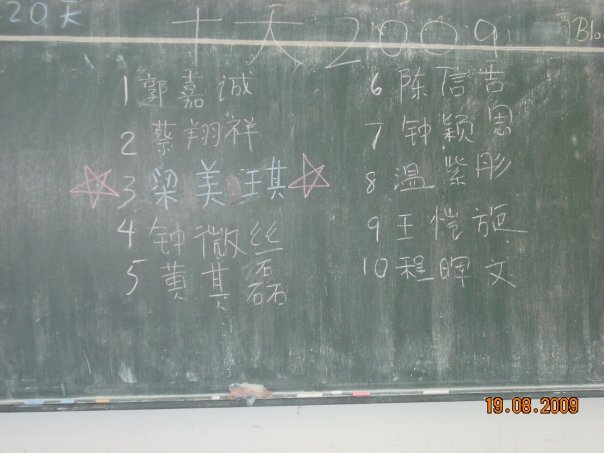 20天
十天2009
Blo
1 郭嘉诚
2 蔡翔祥
3 梁美琪
4 钟微丝
5 黄其磊
6 陈信吉
7 钟颖恩
8 温紫彤
9 王恺施
10 程晖文
19.08.2009